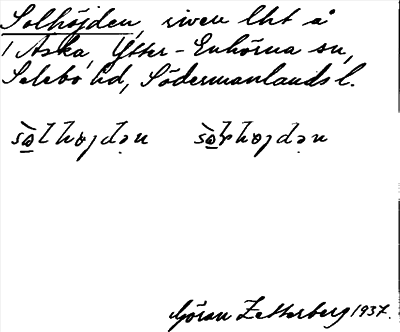 Solhöjden, riven lht å
1 Aska, Ytter-Enhörna sn,
Selebo hd, Södermanlands l.
Göran Zetterberg 1937.